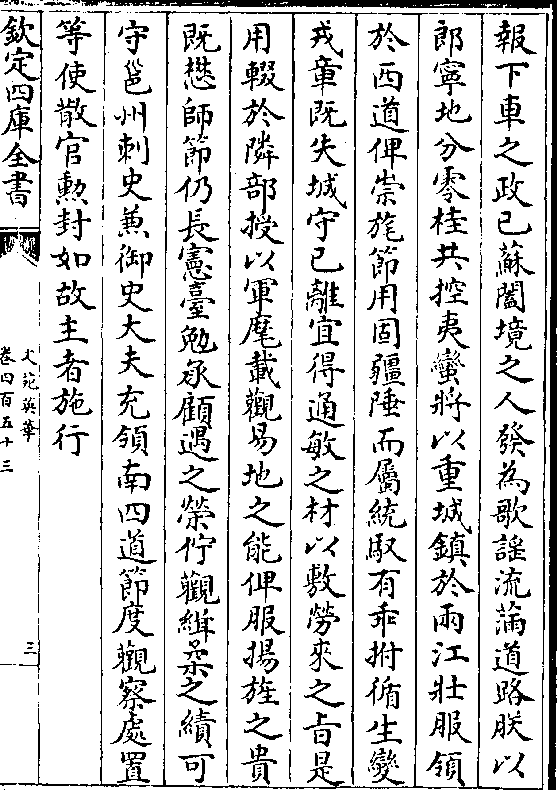 報下車之政已蘇闔境之人發為歌謡流滿道路朕以
郎寧地分零桂共控夷蠻將以重城鎮於兩江壯服領
於西道俾崇旄節用固疆陲而屬統馭有乖拊循生變
戎章既失城守已離宜得通敏之材以敷勞來之旨是
用輟於隣部授以軍麾載觀易地之能俾服揚旌之貴
既懋師節仍長憲臺勉承顧遇之榮佇觀緝柔之績可
守邕州刺史兼御史大夫充領南四道節度觀察處置
等使散官勲封如故主者施行
欽定四庫全書
文苑英華
卷四百五十三
三